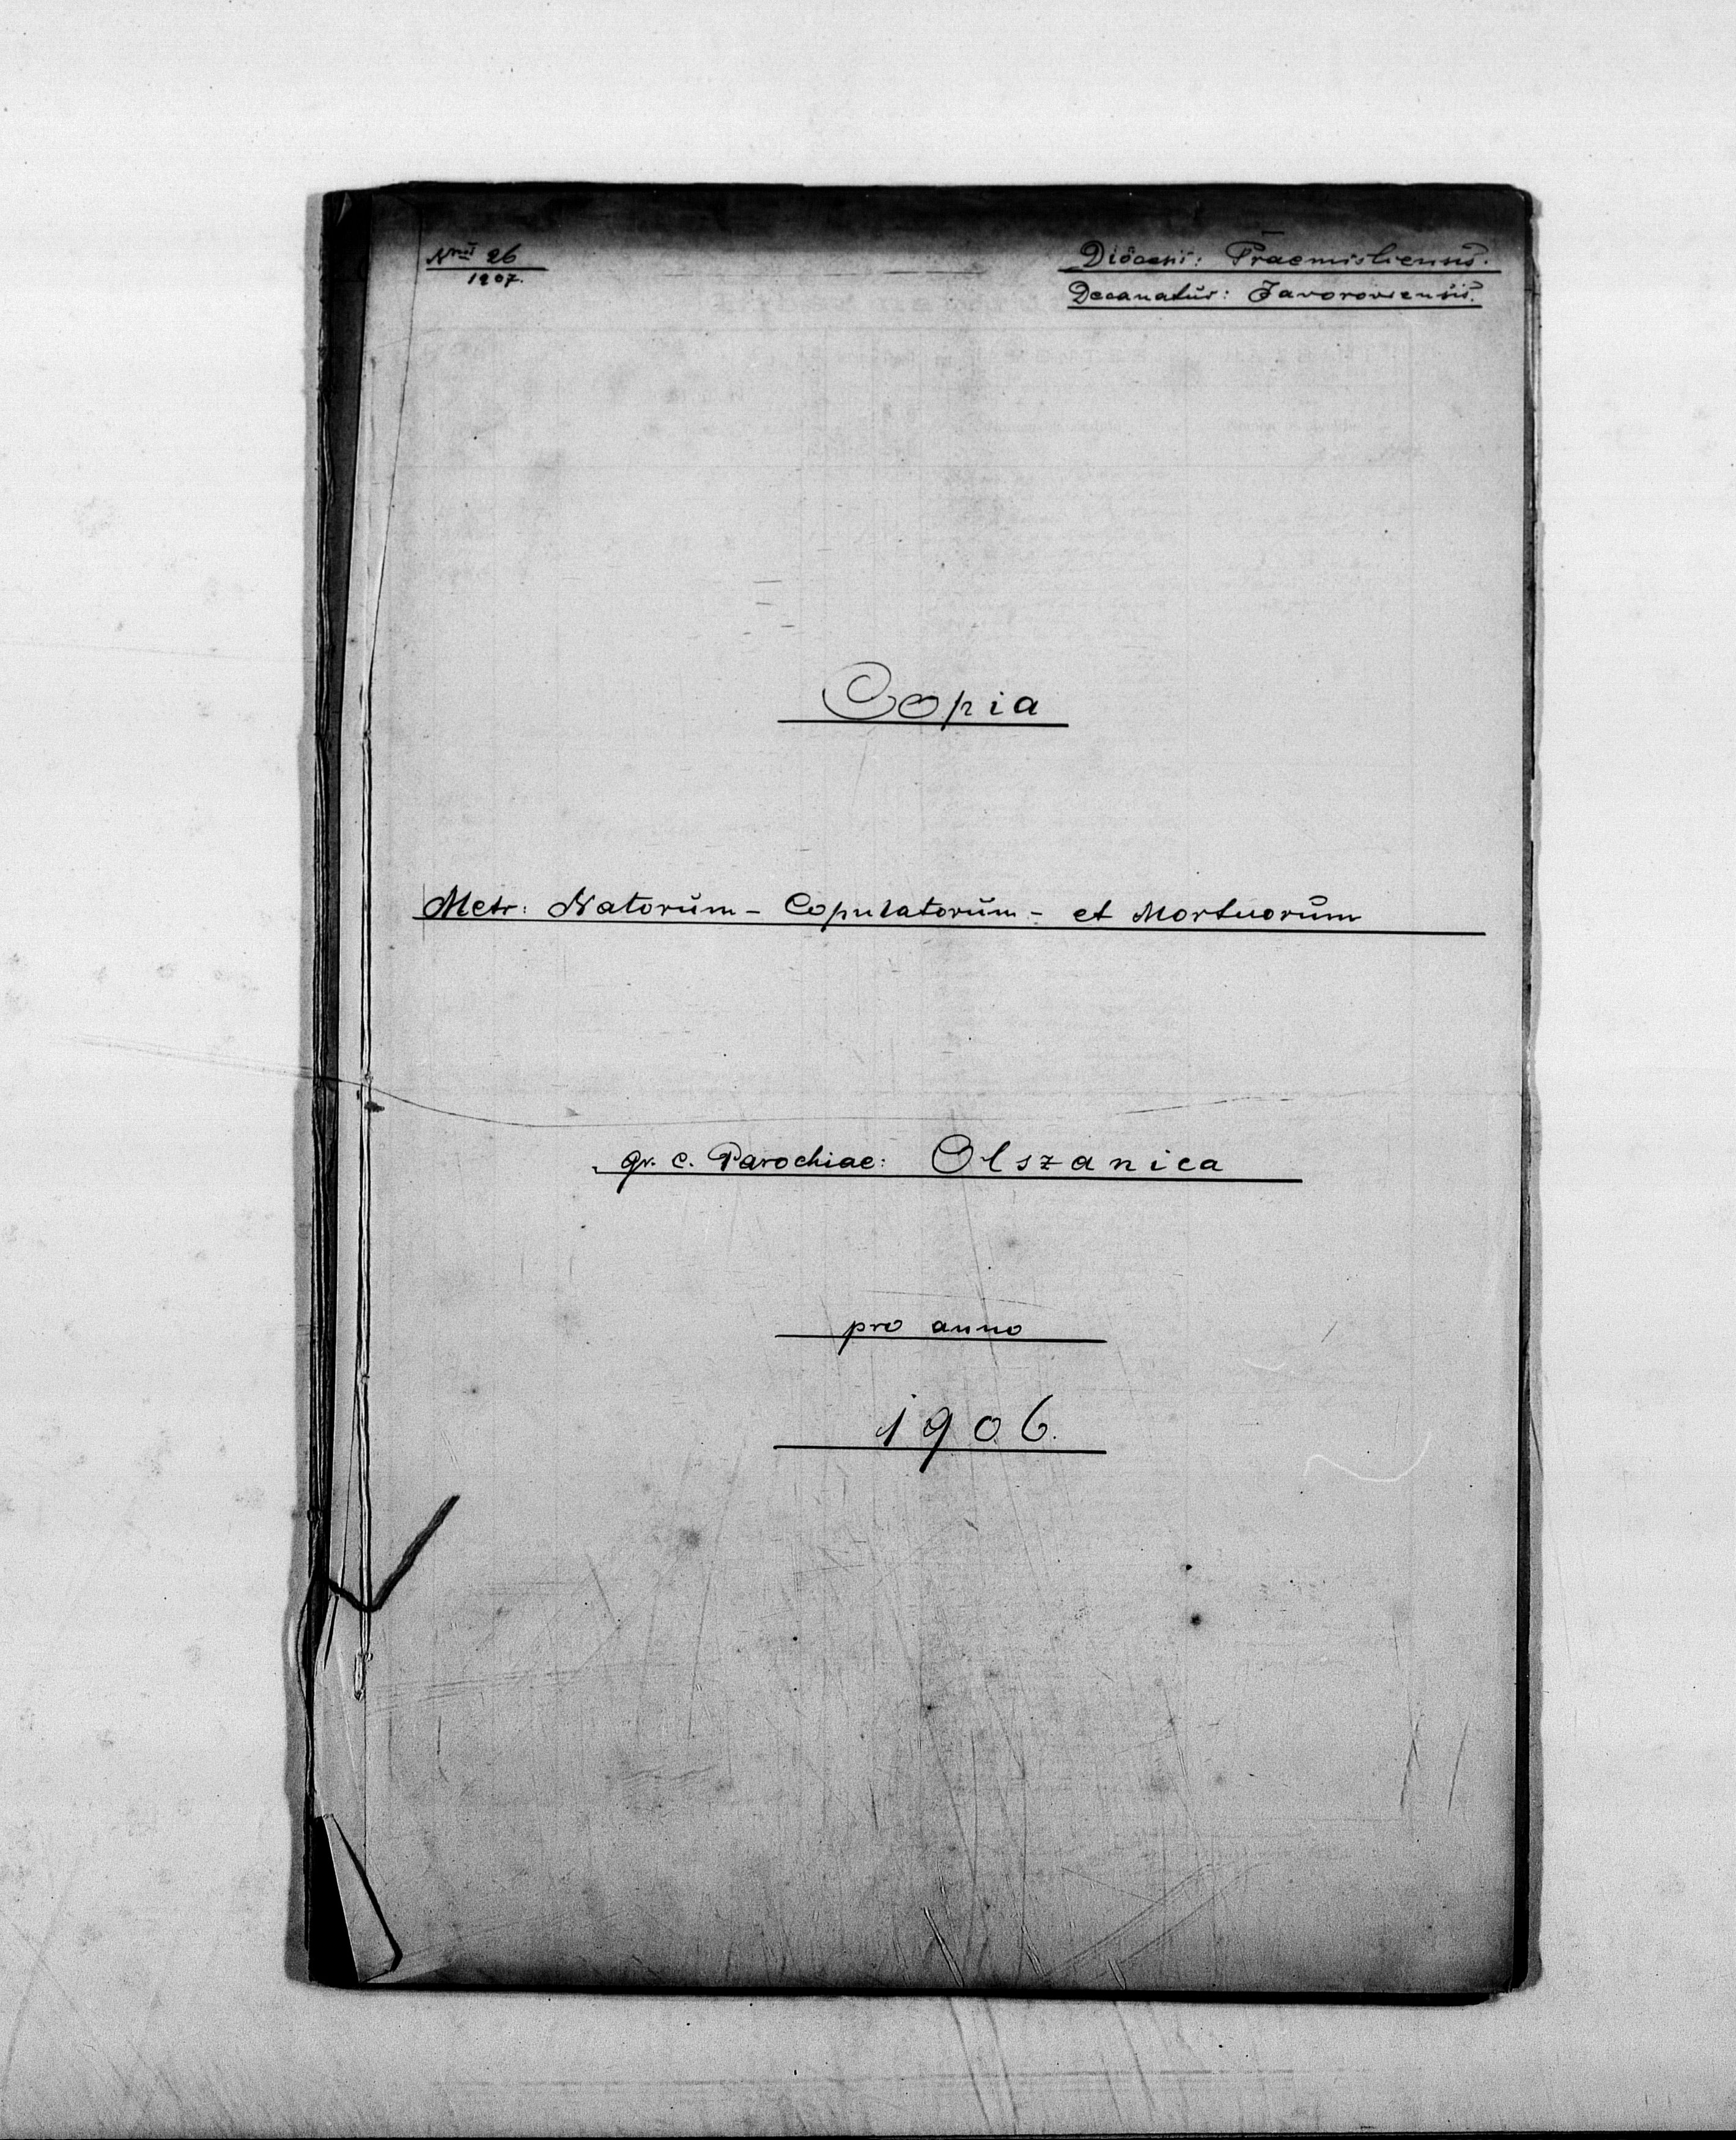 Nrus 26
1907.
Diöcesis: Praemisliensis.
Decanatus: Javoroviensis.
Copia
Metr: Natorŭm - Copulatorŭm - et Mortuorŭm
gr. c. Parochiae: Olszanica
pro anno
1906.